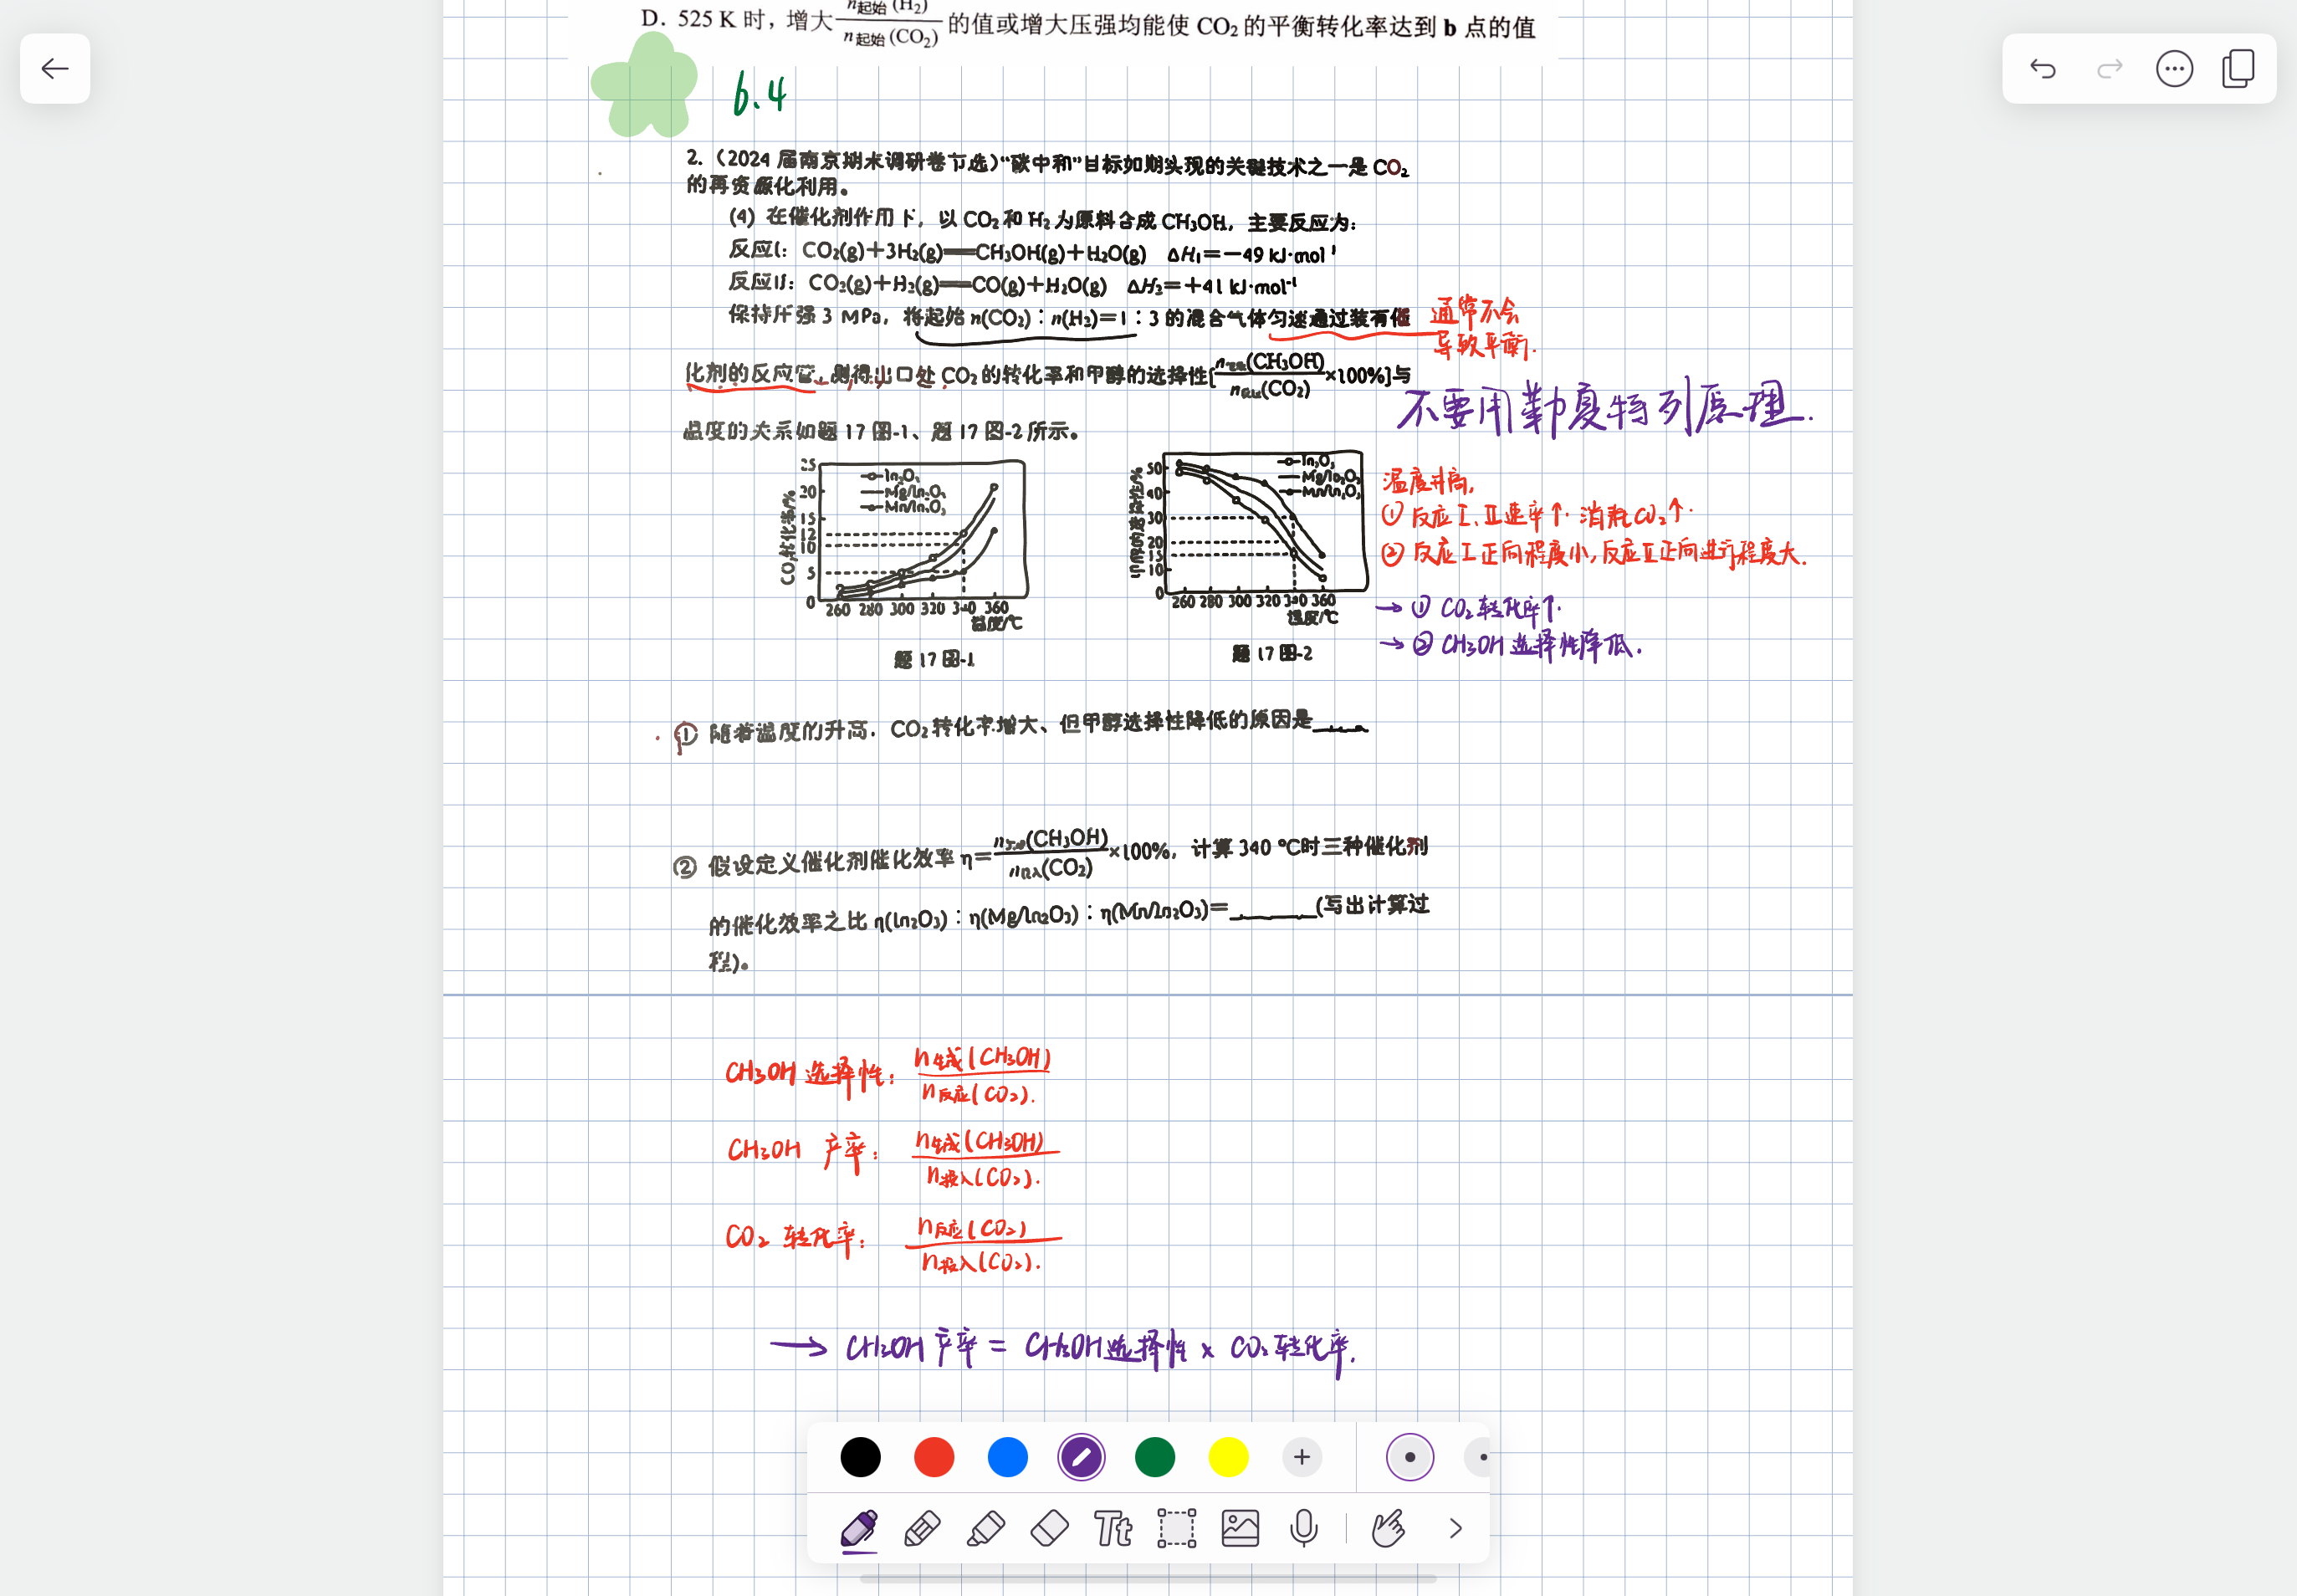 D. 525 K 时，增大 n起始(H₂)/n起始(CO₂) 的值或增大压强均能使 CO₂ 的平衡转化率达到 b 点的值
6.4
2.（2024 届南京期末调研卷节选）“碳中和”目标如期实现的关键技术之一是 CO₂
的再资源化利用。
(4) 在催化剂作用下，以 CO₂ 和 H₂ 为原料合成 CH₃OH，主要反应为：
反应Ⅰ：CO₂(g)＋3H₂(g)══CH₃OH(g)＋H₂O(g) ΔH₁＝－49 kJ·mol⁻¹
反应Ⅱ：CO₂(g)＋H₂(g)══CO(g)＋H₂O(g) ΔH₂＝＋41 kJ·mol⁻¹
保持压强 3 MPa，将起始 n(CO₂)∶n(H₂)＝1∶3 的混合气体匀速通过装有催
通常不会
导致平衡.
化剂的反应管，测得出口处 CO₂ 的转化率和甲醇的选择性[n生成(CH₃OH)/n反应(CO₂)×100%]与
不要用勒夏特列原理.
温度的关系如题 17 图-1、题 17 图-2 所示。
CO₂转化率/%
25
20
15
12
10
5
0
In₂O₃
Mg/In₂O₃
Mn/In₂O₃
260 280 300 320 340 360
温度/℃
题 17 图-1
甲醇的选择性/%
50
40
30
20
15
10
0
In₂O₃
Mg/In₂O₃
Mn/In₂O₃
260 280 300 320 340 360
温度/℃
题 17 图-2
温度升高,
① 反应Ⅰ、Ⅱ速率↑. 消耗CO₂↑.
② 反应Ⅰ正向程度小, 反应Ⅱ正向进行程度大.
→ ① CO₂ 转化率↑.
→ ② CH₃OH 选择性降低.
① 随着温度的升高. CO₂ 转化率增大、但甲醇选择性降低的原因是____
② 假设定义催化剂催化效率 η＝n生成(CH₃OH)/n投入(CO₂)×100%，计算 340 ℃时三种催化剂
的催化效率之比 η(In₂O₃)∶η(Mg/In₂O₃)∶η(Mn/In₂O₃)＝______(写出计算过
程)。
CH₃OH 选择性: n生成(CH₃OH)/n反应(CO₂).
CH₃OH 产率: n生成(CH₃OH)/n投入(CO₂).
CO₂ 转化率: n反应(CO₂)/n投入(CO₂).
→ CH₃OH 产率 = CH₃OH 选择性 × CO₂ 转化率.
Tt